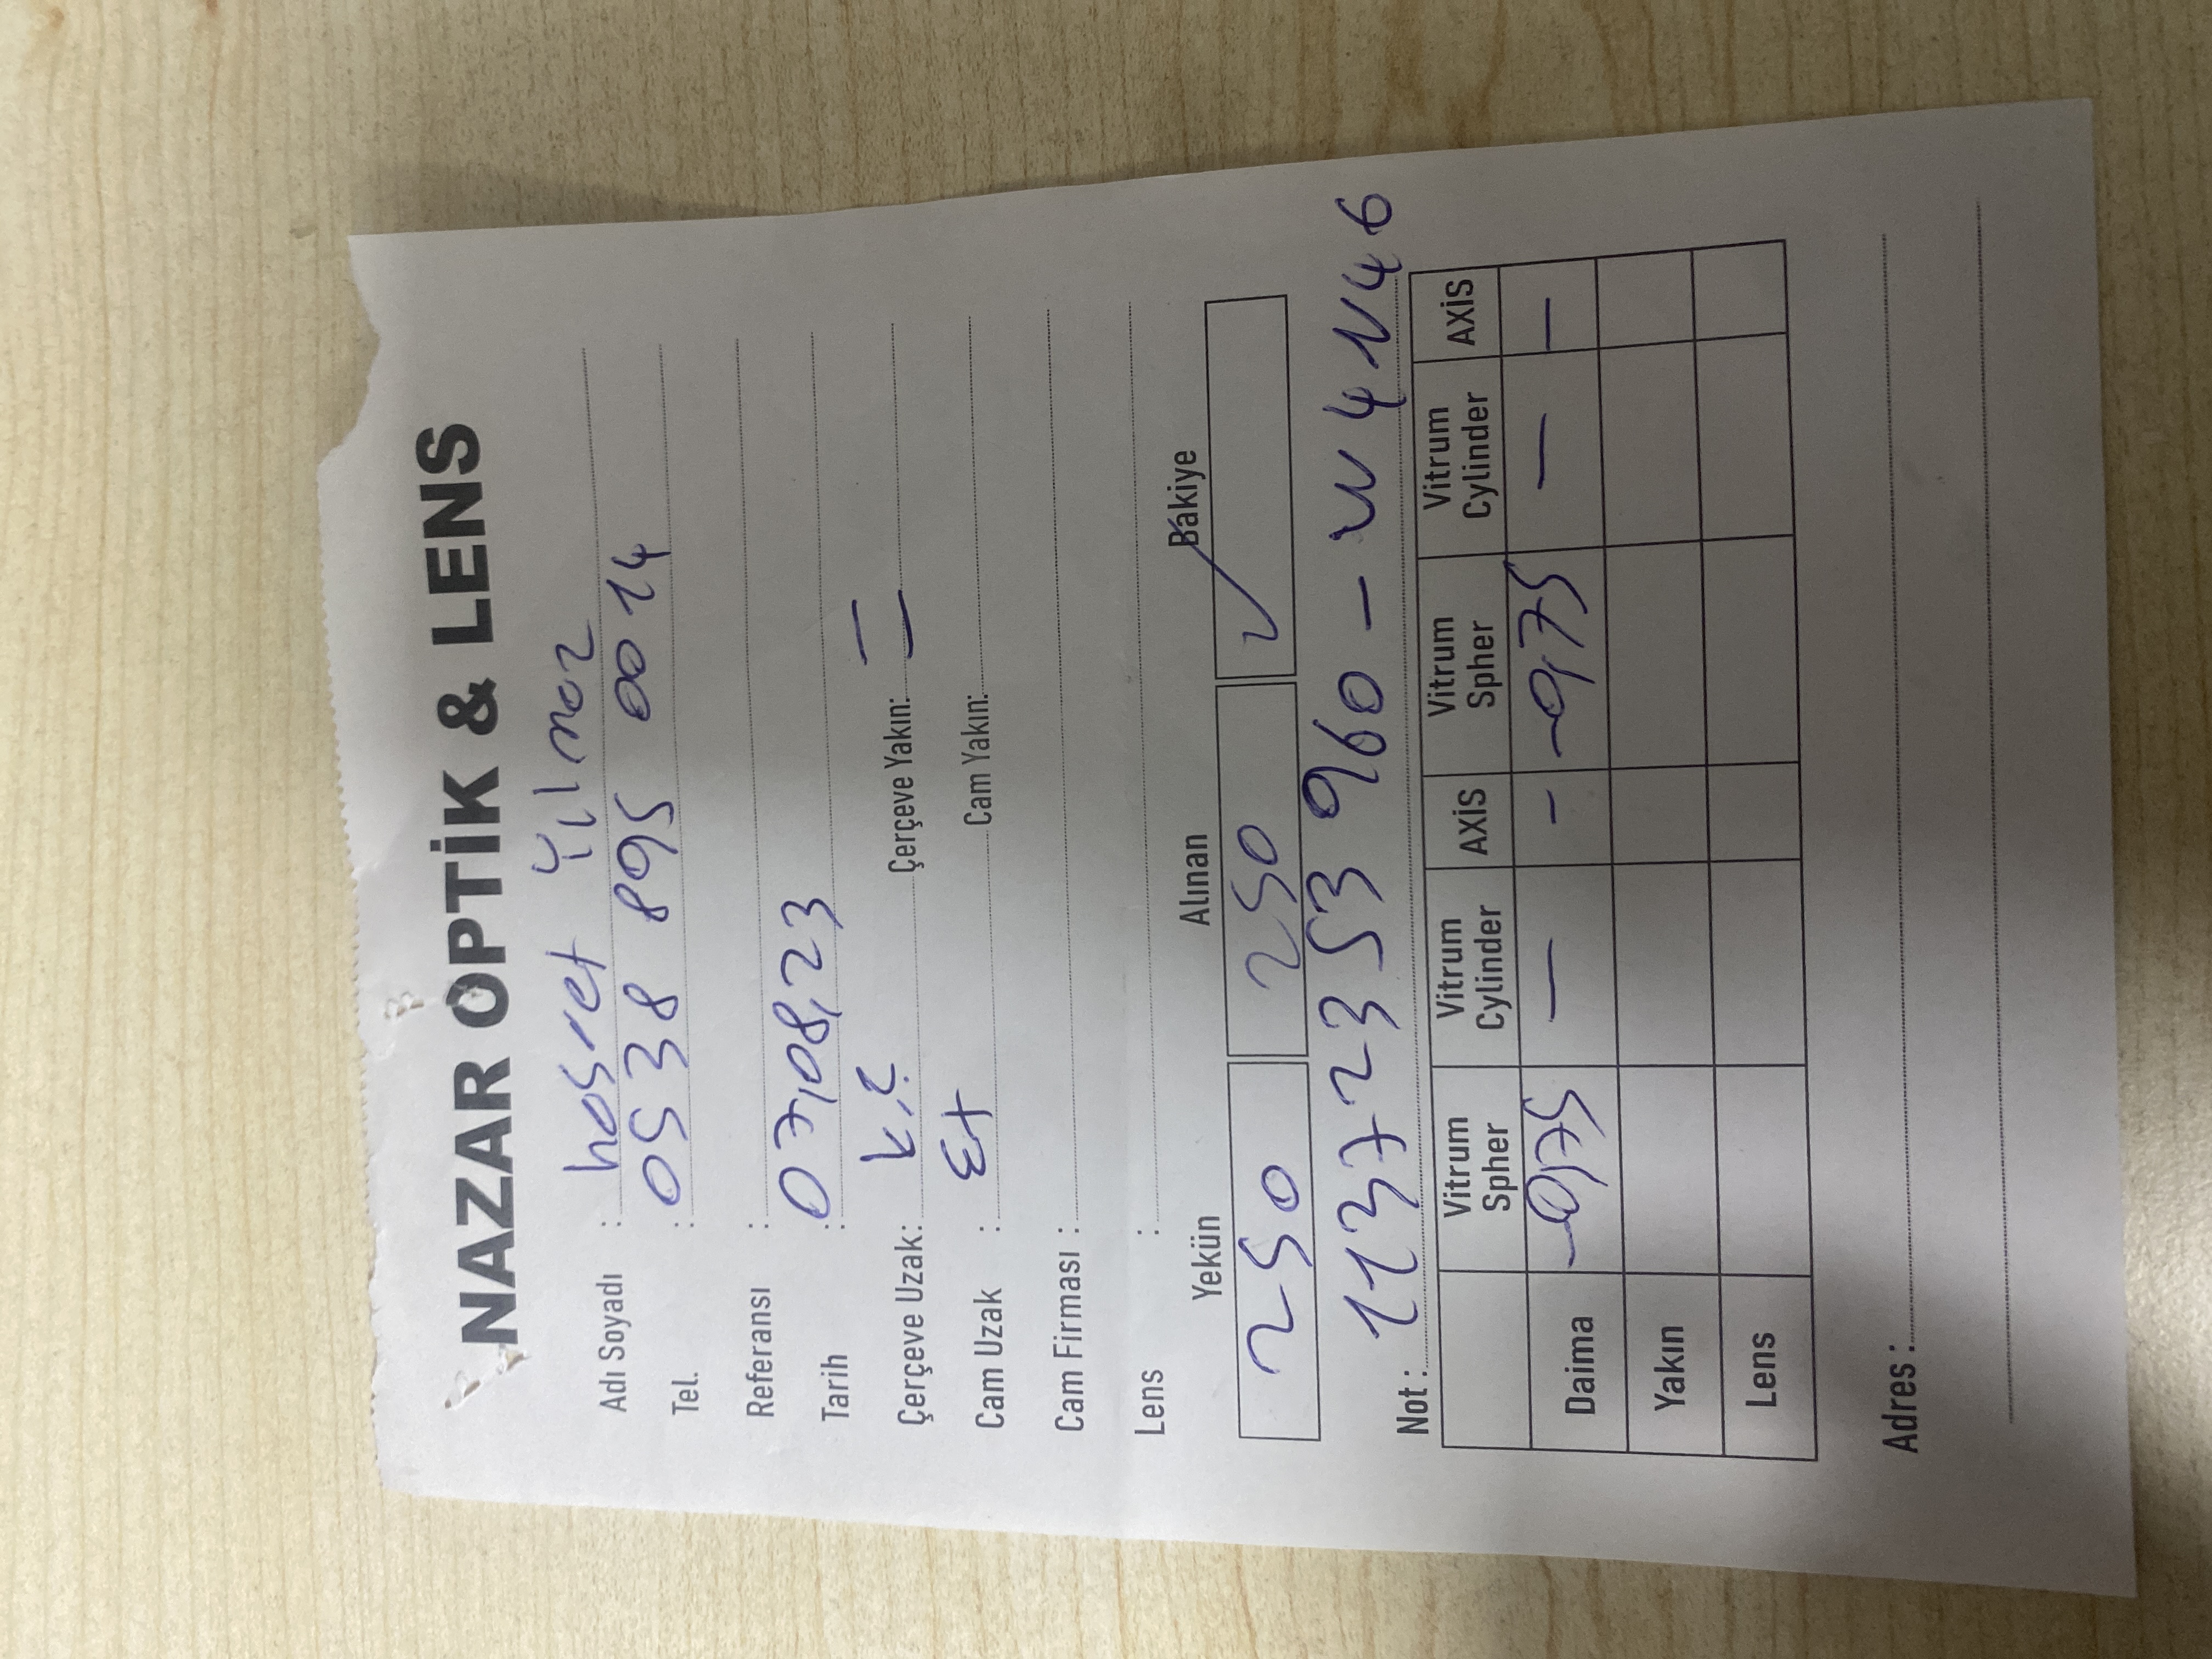 NAZAR OPTİK & LENS
Adı Soyadı : hasret Yılmaz
Tel. : 0538 895 0014
Referansı :
Tarih : 07,08,23
Çerçeve Uzak: k.ç Çerçeve Yakın:
Cam Uzak : Ex Cam Yakın:
Cam Firması :
Lens :
Yekün Alınan Bakiye
250 250 ✓
Not : 11372353960 - W4N46
Vitrum Spher Vitrum Cylinder AXİS Vitrum Spher Vitrum Cylinder AXİS
Daima -0,75 — - -0,75 — —
Yakın
Lens
Adres :